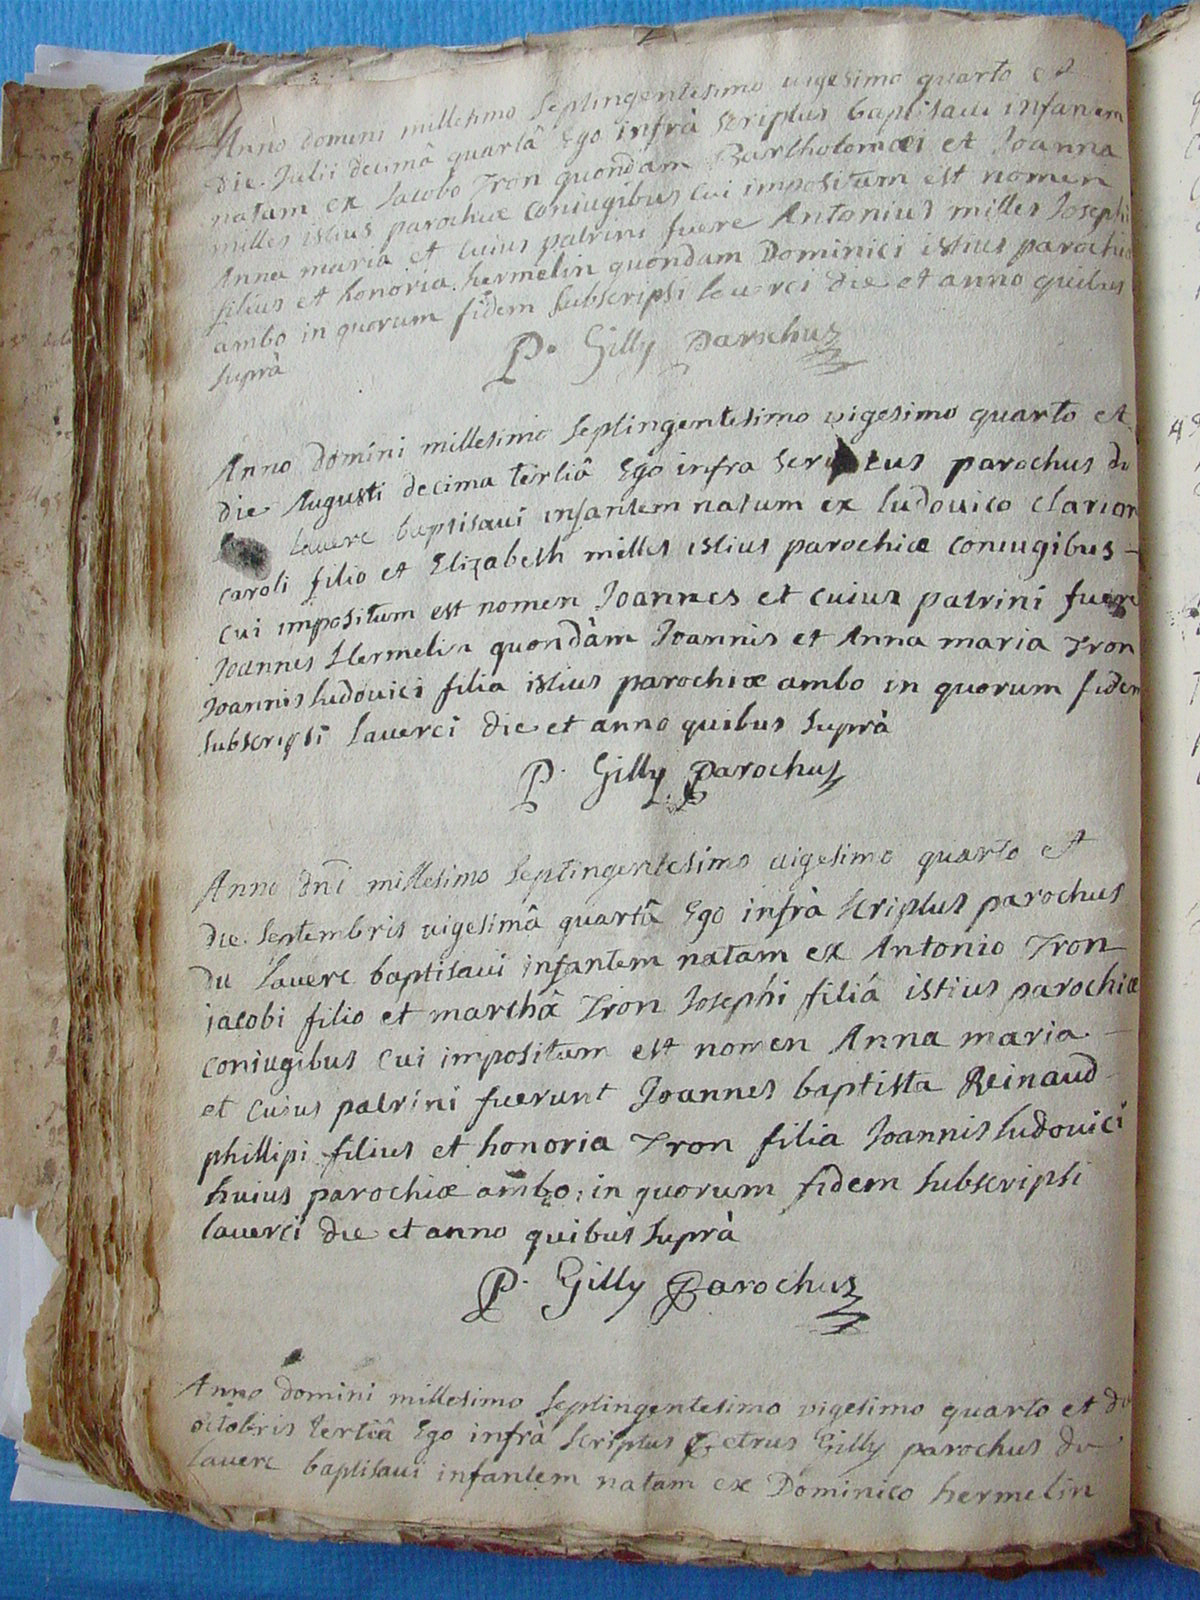 Anno domini millesimo septingentesimo vigesimo quarto et
die Julii decimâ quartâ Ego infrà scriptus baptisavi infantem
natam ex Jacobo Tron quondam Bartholomæi et Joanna
milles istius parochiæ coniugibus cui impositum est nomen
Anna maria et cuius patrini fuere Antonius milles Josephi
filius et honoria hermelin quondam Dominici istius parochiæ
ambo in quorum fidem subscripsi laverci die et anno quibus
suprà
P. Gilly Parochus
Anno domini millesimo septingentesimo vigesimo quarto et
die Augusti decima tertiâ Ego infra scriptus parochus du
laverc baptisaui infantem natum ex ludouico clarion
caroli filio et Elizabeth milles istius parochiæ coniugibus
cui impositum est nomen Joannes et cuius patrini fuere
Joannes Hermelin quondàm Joannis et Anna maria Tron
Joannis ludouici filia istius parochiæ ambo in quorum fidem
subscripsi laverci die et anno quibus suprà
P. Gilly Parochus
Anno dni millesimo septingentesimo uigesimo quarto et
die septembris uigesimâ quartâ Ego infrà scriptus parochus
du laverc baptisaui infantem natam ex Antonio Tron
jacobi filio et marthâ Tron Josephi filiâ istius parochiæ
coniugibus cui impositum est nomen Anna maria
et cuius patrini fuerunt Joannes baptista Reinaud
phillipi filius et honoria Tron filia Joannis ludouici
huius parochiæ ambo, in quorum fidem subscripsi
laverci die et anno quibus suprà
P. Gilly Parochus
Anno domini millesimo septingentesimo vigesimo quarto et die
octobris tertiâ Ego infrà scriptus Petrus Gilly parochus du
laverc baptisaui infantem natam ex Dominico hermelin